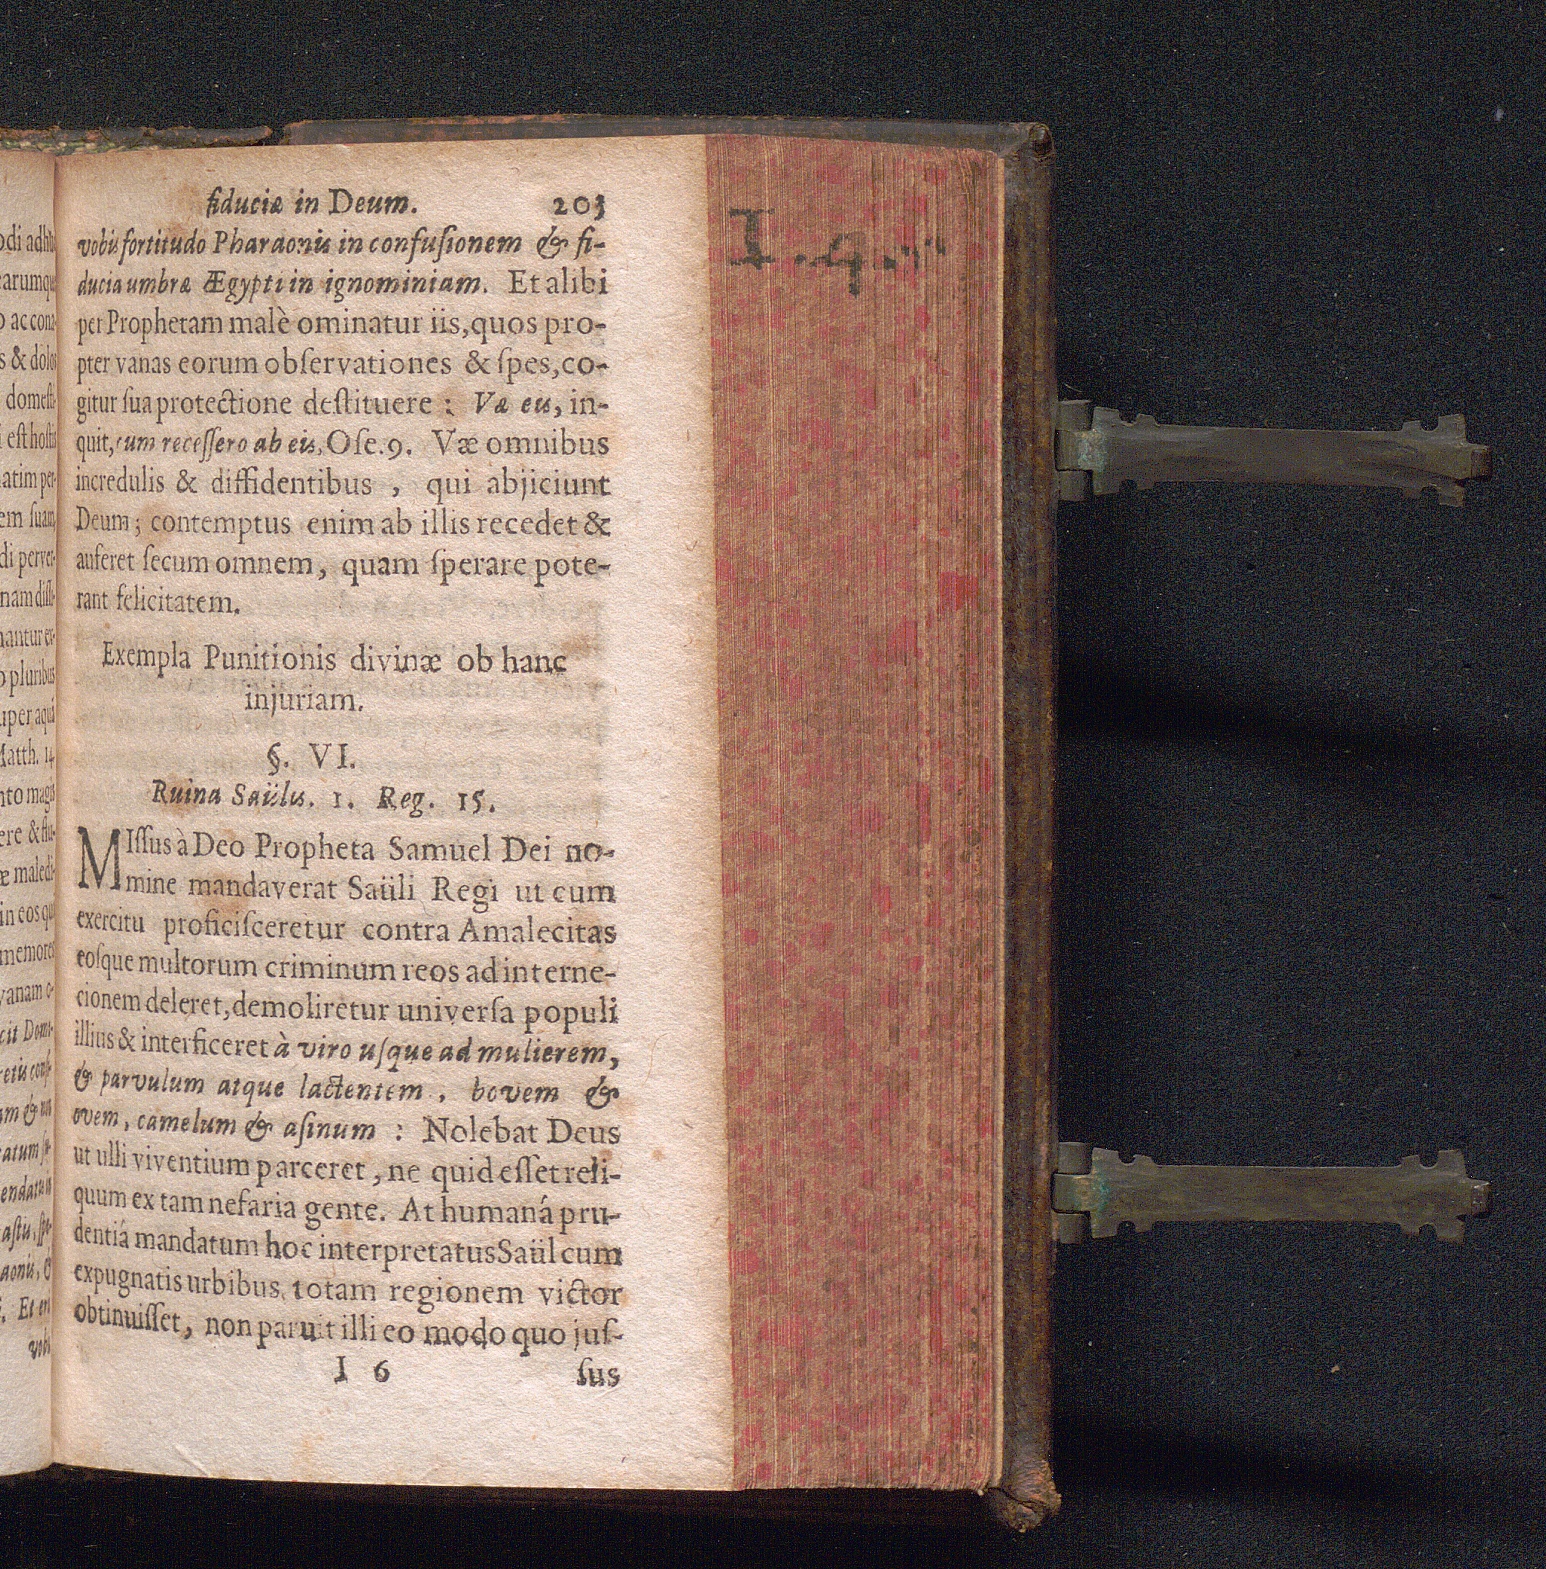 fiduciæ in Deum. 203
vobis fortitudo Pharaonis in confuſionem & fi-
ducia umbræ Ægypti in ignominiam. Et alibi
per Prophetam malè ominatur iis, quos pro-
pter vanas eorum obſervationes & ſpes, co-
gitur ſua protectione deſtituere : Væ eis, in-
quit, cum receſſero ab eis, Oſe. 9. Væ omnibus
incredulis & diffidentibus , qui abjiciunt
Deum ; contemptus enim ab illis recedet &
auferet ſecum omnem, quam ſperare pote-
rant felicitatem.
Exempla Punitionis divinæ ob hanc
injuriam.
§. VI.
Ruina Saülis. 1. Reg. 15.
MIſſus à Deo Propheta Samuel Dei no-
mine mandaverat Saüli Regi ut cum
exercitu proficiſceretur contra Amalecitas
eoſque multorum criminum reos ad interne-
cionem deleret, demoliretur univerſa populi
illius & interficeret à viro uſque ad mulierem,
& parvulum atque lactentem , bovem &
ovem, camelum & aſinum : Nolebat Deus
ut ulli viventium parceret, ne quid eſſet reli-
quum ex tam nefaria gente. At humaná pru-
dentiá mandatum hoc interpretatus Saül cum
expugnatis urbibus, totam regionem victor
obtinuiſſet, non paruit illi eo modo quo juſ-
I 6 ſus